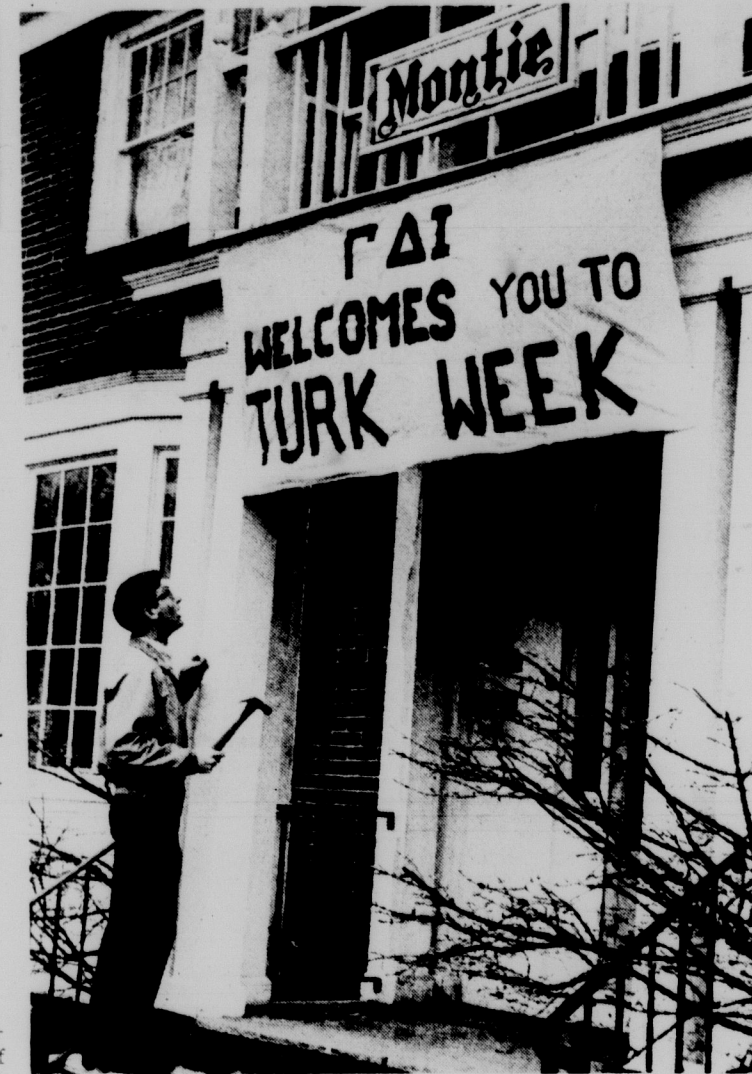 Montie
ΓΔΙ
WELCOMES YOU TO
TURK WEEK